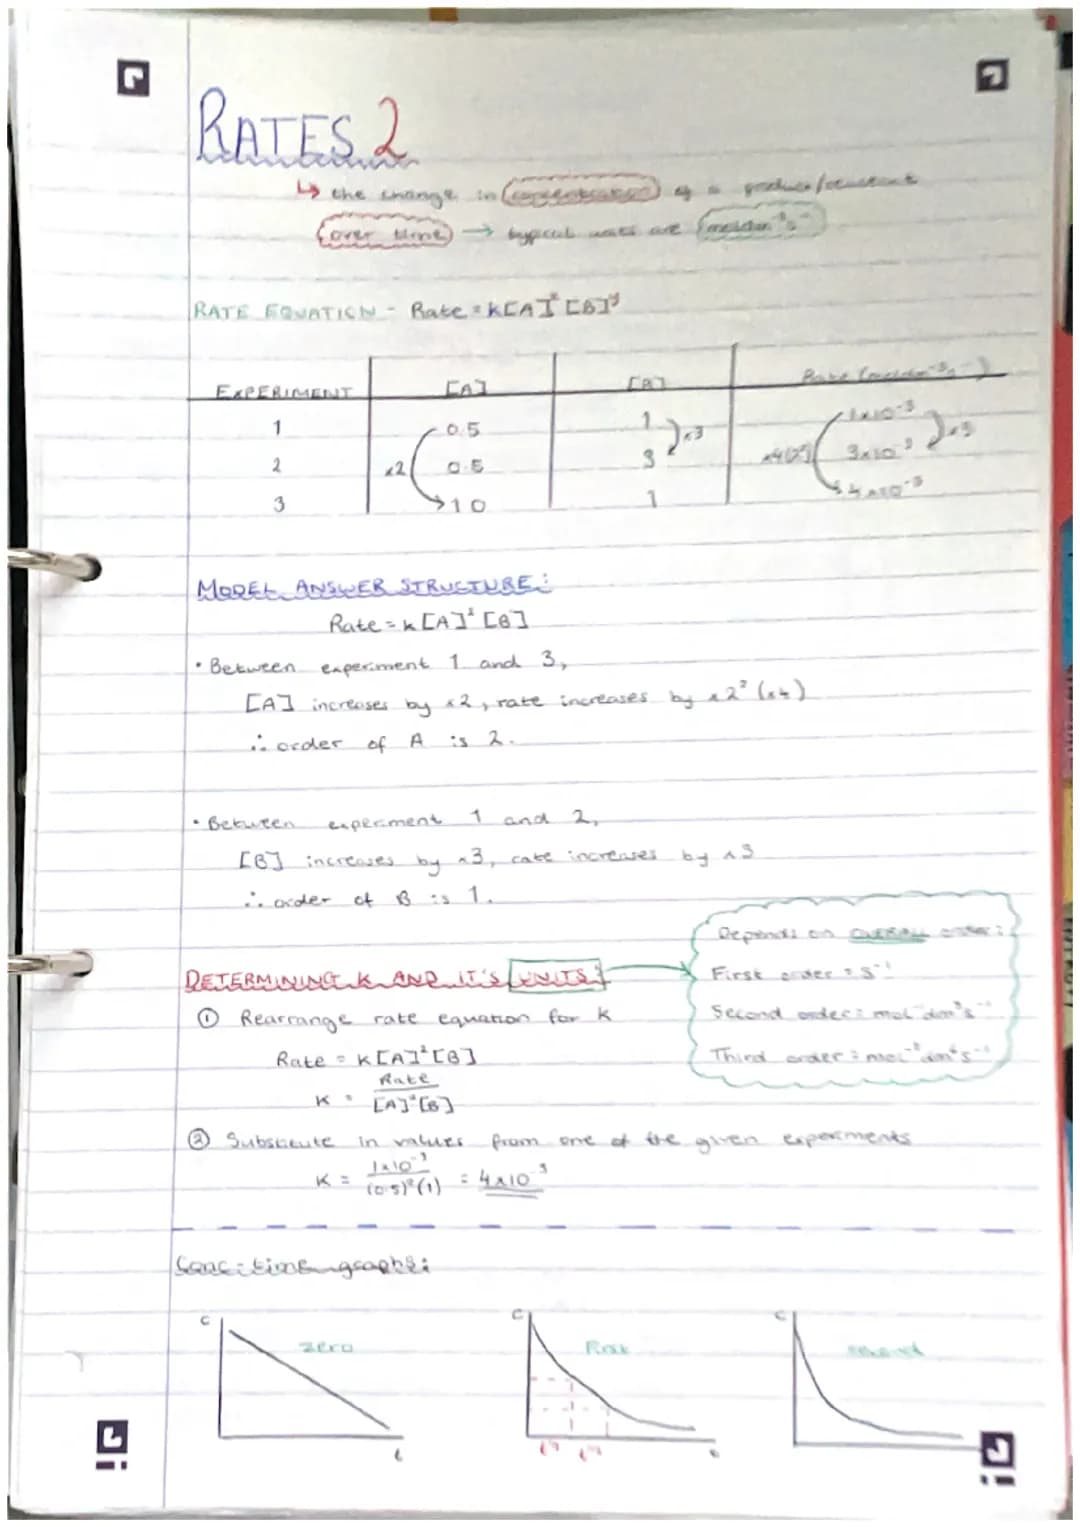 RATES 2
↳ the change in concentration of a product/reactant
over time → typical units are moldm⁻³s⁻¹
RATE EQUATION - Rate = k[A]ˣ[B]ʸ
EXPERIMENT [A] [B] Rate (moldm⁻³s⁻¹)
1 0.5 1 1x10⁻³
x3 x3
2 x2 0.5 3 x4(2²) 3x10⁻³
3 1.0 1 4x10⁻³
MODEL ANSWER STRUCTURE:
Rate = k[A]²[B]
• Between experiment 1 and 3,
[A] increases by x2, rate increases by x2² (x4)
∴ order of A is 2.
• Between experiment 1 and 2,
[B] increases by x3, rate increases by x3
∴ order of B is 1.
DETERMINING K AND IT'S UNITS:
Depends on OVERALL order:
First order = s⁻¹
Second order: mol⁻¹dm³s⁻¹
Third order: mol⁻²dm⁶s⁻¹
① Rearrange rate equation for k
Rate = k[A]²[B]
K = Rate
[A]²[B]
② Substitute in values from one of the given experiments
K = 1x10⁻³ = 4x10⁻³
(0.5)²(1)
Conc-time graphs:
C zero t
C First
C second